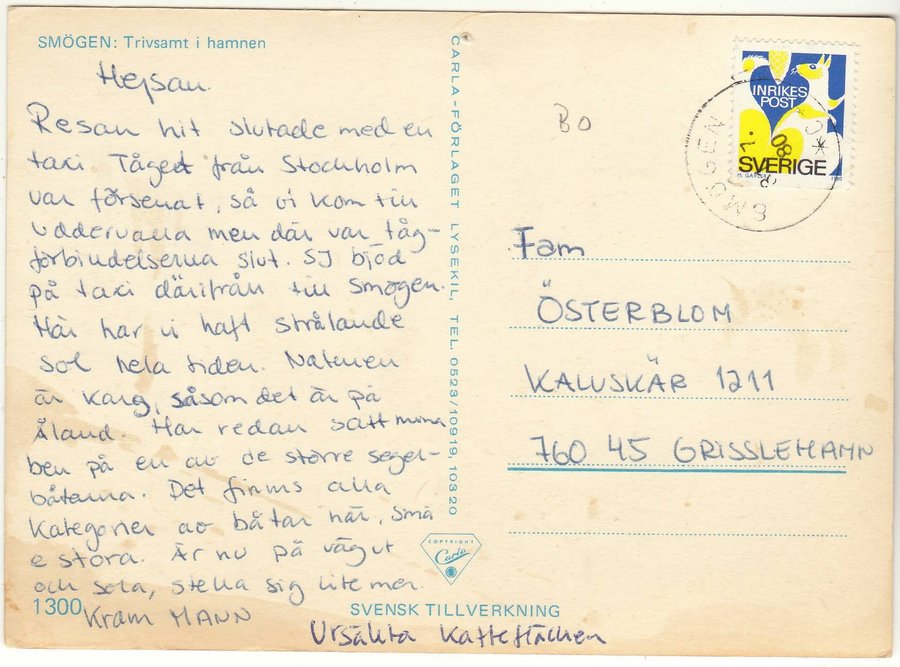 SMÖGEN: Trivsamt i hamnen
Hejsan.
Resan hit slutade med en
taxi Tåget från Stockholm
var försenat, så vi kom till
Uddevalla men där var tåg-
förbindelserna slut. SJ bjöd
på taxi därifrån till Smögen.
Här har vi haft strålande
sol hela tiden. Naturen
är karg, såsom det är på
Åland. Har redan satt mina
ben på en av de större segel-
båtarna. Det finns alla
kategorier av båtar här, små
o stora. Är nu på väg ut
och sola, steka sig lite mer.
Kram MANN
Ursäkta kaffefläcken
1300
SVENSK TILLVERKNING
CARLA-FÖRLAGET LYSEKIL, TEL. 0523/10919, 10320
COPYRIGHT
Carla
BO
INRIKES
POST
SVERIGE
1980
SMÖGEN
Fam
ÖSTERBLOM
KALVSKÄR 1211
760 45 GRISSLEHAMN